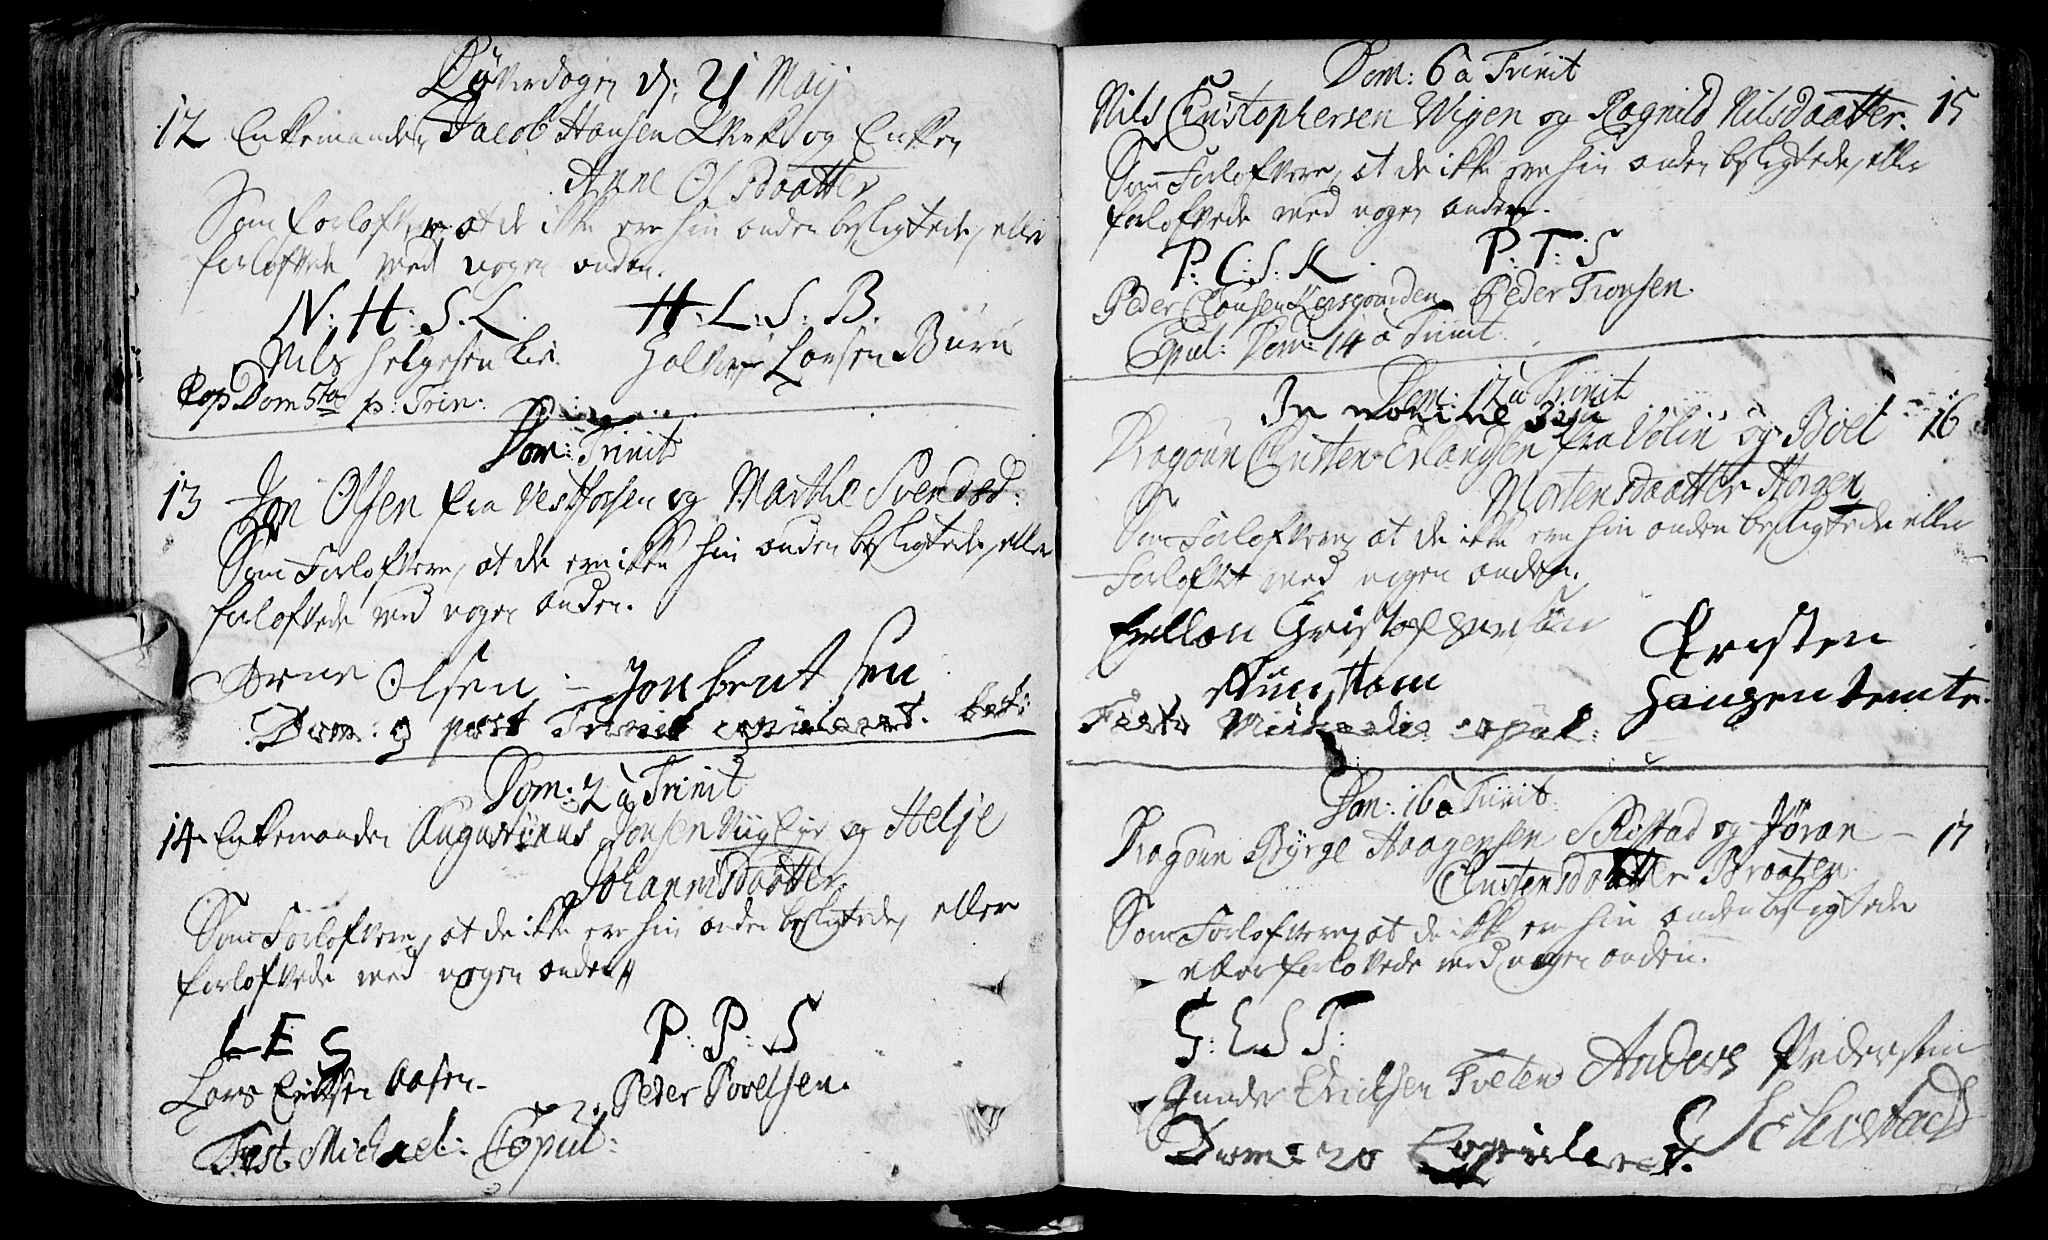 Løverdagen d: 21 Maij
12 Enkemanden Jacob Hansen og Enken
Anne Olsdaatter
Som forlofvere, at de ikke ere hin anden besligtede, eller
forlofvede med nogen anden.
N: H: S. L. H: L: S: B.
Nils Helgesen Lie. Halvor Larsen Buru
Cop Dom 5ta p: Trin:
Dom: Trinit
13 Jon Olsen fra Vestfosen og Marthe Svendsd:
Som Forlofvere, at de ere ikke hin anden besligtede, eller
forlofvede med nogen anden.
Arne Olsen - Jon bent sen
Dom: 9 post Trinit copuleret.
Dom: 2 a Trinit
14 Enkemanden Augustinus Jonsen og Helje
Johannisdaatter
Som Forlofvere, at de ikke ere hin anden besligtede, eller
forlofvede med nogen anden
L E S P: P: S
Lars Eriksen Aasen. Peder Povelsen.
Fest. Michael: Copul:
Dom: 6 a Trinit
Nils Christophersen Wigen og Ragnild Nilsdaatter. 15
Som Forlofvere, at de ikke ere hin anden besligtede, eller
forlofvede med nogen anden.
P: C: S: K. P: T: S
Peder Peder Tronsen.
Copul: Dom: 14 a Trinit.
Dom: 12 a Trinit
In nomine
Dragoun Christen Erlandsen fra Volin og Boel 16
Mortensdaatter Horgen
Som Forlofvere, at de ikke ere hin anden besligtede eller
Forlofvet med nogen anden.
Cristen
Hansen temte.
Festo Mickaelis copul:
Dom: 16 a Trinit.
Dragoun Byrge Haagensen og Jøran - 17
Christensdaatter Braaten.
Som Forlofvere, at de ikke ere hin anden besligtede
eller forlovede med nogen anden.
G: E S T:
Gunder Erichsen Tveten Anders Pedersen
Dom: 20 Copuleret.